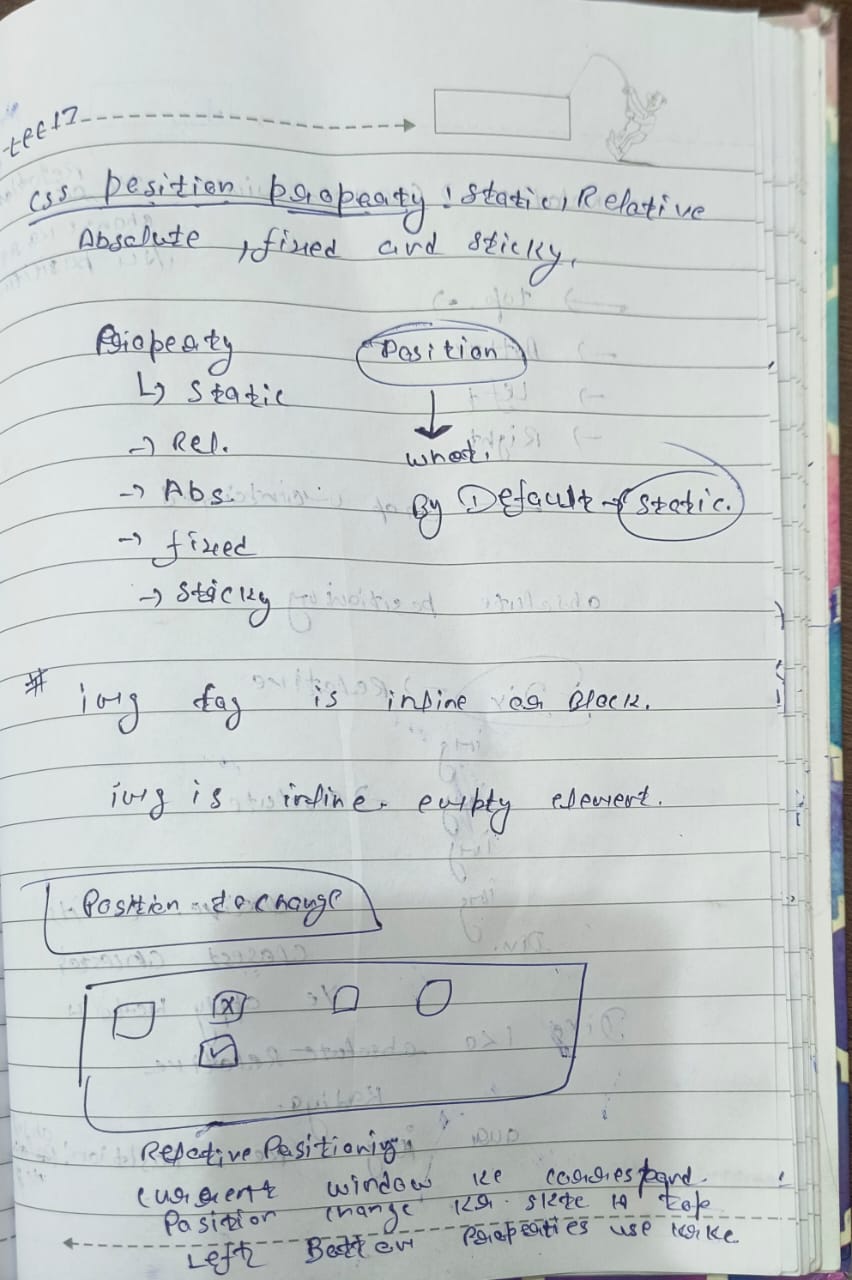 Lec 17
CSS Position property : Static, Relative
Absolute, fixed and sticky.
Property
Position
↳ Static
→ Rel.
what.
→ Abs.
By Default → Static.
→ fixed
→ Sticky
# img tag is inline or Block.
img is inline. empty element.
Position to change
Relative Positioning
current window ke correspond.
Position change kr skte h top
Left Bottom Properties use krke